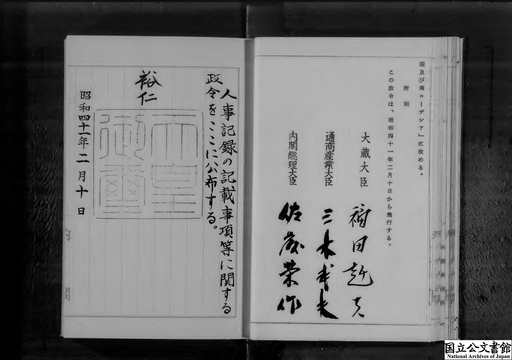 国及び南ローデシア」に改める。
附則
この政令は、昭和四十一年二月十日から施行する。
大蔵大臣 福田赳夫
通商産業大臣 三木武夫
内閣総理大臣 佐藤栄作
人事記録の記載事項等に関する
政令をここに公布する。
裕仁
天皇
御璽
昭和四十一年二月十日
国立公文書館
National Archives of Japan